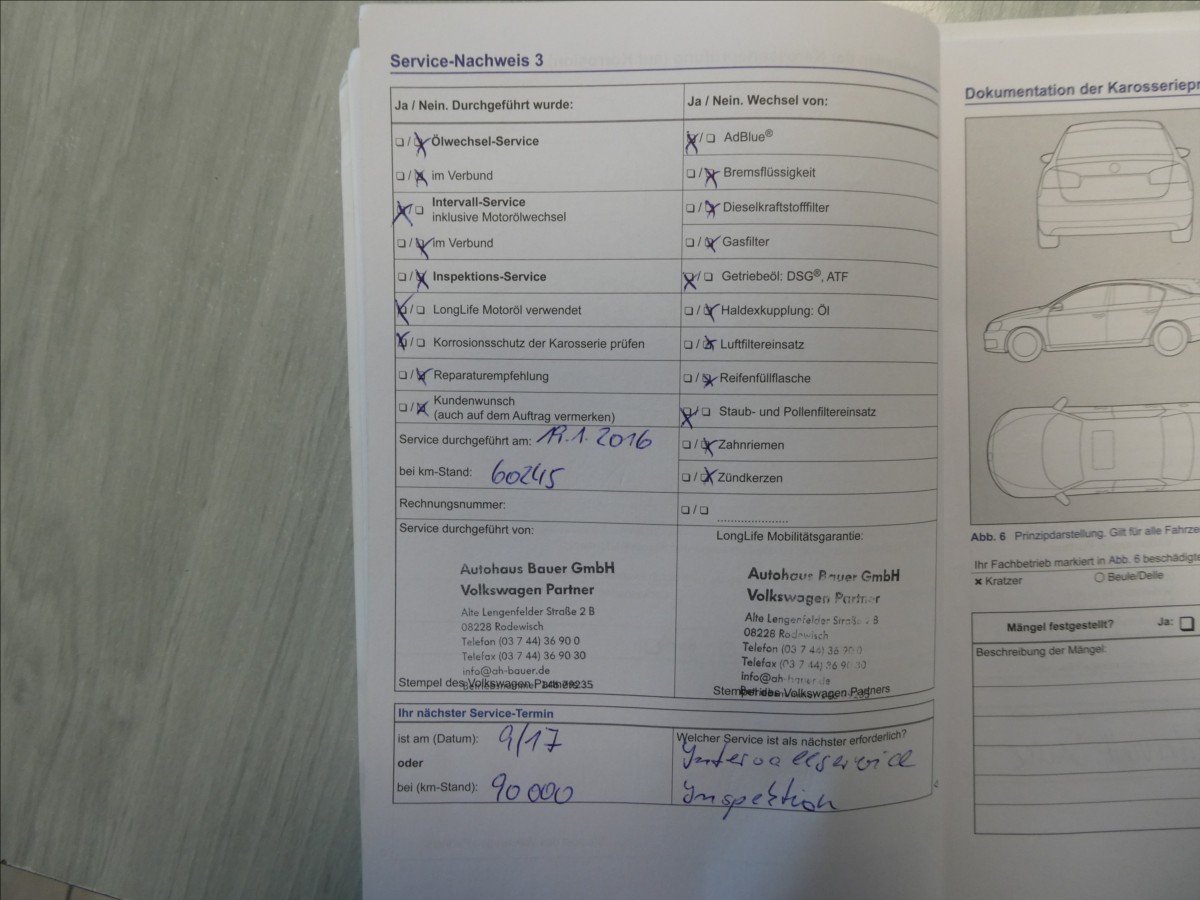 Service-Nachweis 3
Ja / Nein. Durchgeführt wurde:
Ölwechsel-Service
im Verbund
Intervall-Service
inklusive Motorölwechsel
im Verbund
Inspektions-Service
LongLife Motoröl verwendet
Korrosionsschutz der Karosserie prüfen
Reparaturempfehlung
Kundenwunsch
(auch auf dem Auftrag vermerken)
Service durchgeführt am: 19.1.2016
bei km-Stand: 60245
Rechnungsnummer:
Service durchgeführt von:
Autohaus Bauer GmbH
Volkswagen Partner
Alte Lengenfelder Straße 2 B
08228 Rodewisch
Telefon (03 7 44) 36 90 0
Telefax (03 7 44) 36 90 30
info@ah-bauer.de
Stempel des Volkswagen Partners
Ja / Nein. Wechsel von:
AdBlue®
Bremsflüssigkeit
Dieselkraftstofffilter
Gasfilter
Getriebeöl: DSG®, ATF
Haldexkupplung: Öl
Luftfiltereinsatz
Reifenfüllflasche
Staub- und Pollenfiltereinsatz
Zahnriemen
Zündkerzen
LongLife Mobilitätsgarantie:
Autohaus Bauer GmbH
Volkswagen Partner
Alte Lengenfelder Straße 2 B
08228 Rodewisch
Telefon (03 7 44) 36 90 0
Telefax (03 7 44) 36 90 30
info@ah-bauer.de
Stempel des Volkswagen Partners
Ihr nächster Service-Termin
ist am (Datum): 9/17
oder
bei (km-Stand): 90000
Welcher Service ist als nächster erforderlich?
Intervallservice
Inspektion
Dokumentation der Karosseriepr
Abb. 6 Prinzipdarstellung. Gilt für alle Fahrze
Ihr Fachbetrieb markiert in Abb. 6 beschädigte
Kratzer
Beule/Delle
Mängel festgestellt? Ja:
Beschreibung der Mängel: